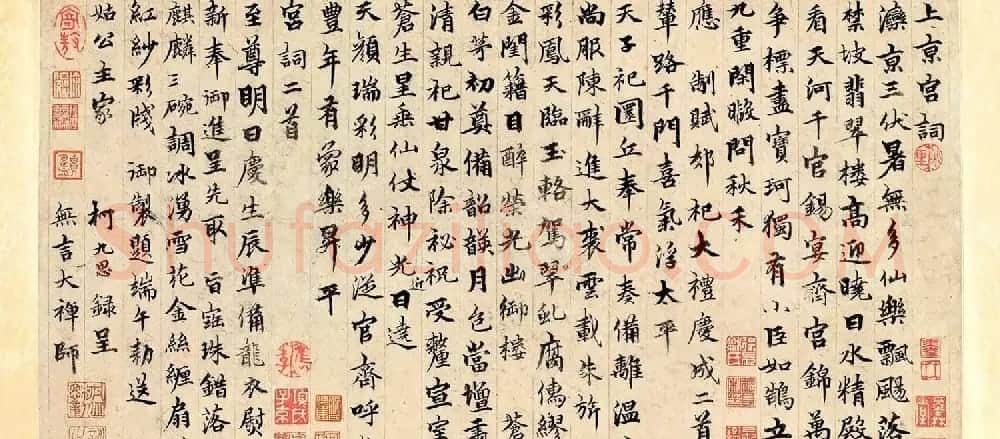 上京宮詞
灤京三伏暑無多仙樂飄颻落
禁坡翡翠樓高迎曉日水精殿
看天河千官錫宴齊宮錦萬
爭標盡寶珂獨有小臣如鵠立
九重閑暇問秋禾
應制賦郊祀大禮慶成二首
輦路千門喜氣浮太平
天子祀圜丘奉常奏備離溫
尚服陳辭進大裘雲載朱旂
彩鳳天臨玉輅駕翠虬腐儒繆
金閨籍目醉榮光出御樓 蒼
白茅初奠備韶韺月色當壇
清親祀甘泉除祕祝受釐宣室
蒼生星乘仙仗神光近日遶
天顏瑞彩明多少從官齊呼
豐年有象樂昇平
宮詞二首
至尊明日慶生辰準備龍衣熨
新奉御進呈先取旨寶珠錯落
麒麟三碗調冰湧雪花金絲纏扇
紅紗彩牋御製題端午勅送
姑公主家
柯九思錄呈
無言大禪師
shufaziliao.com